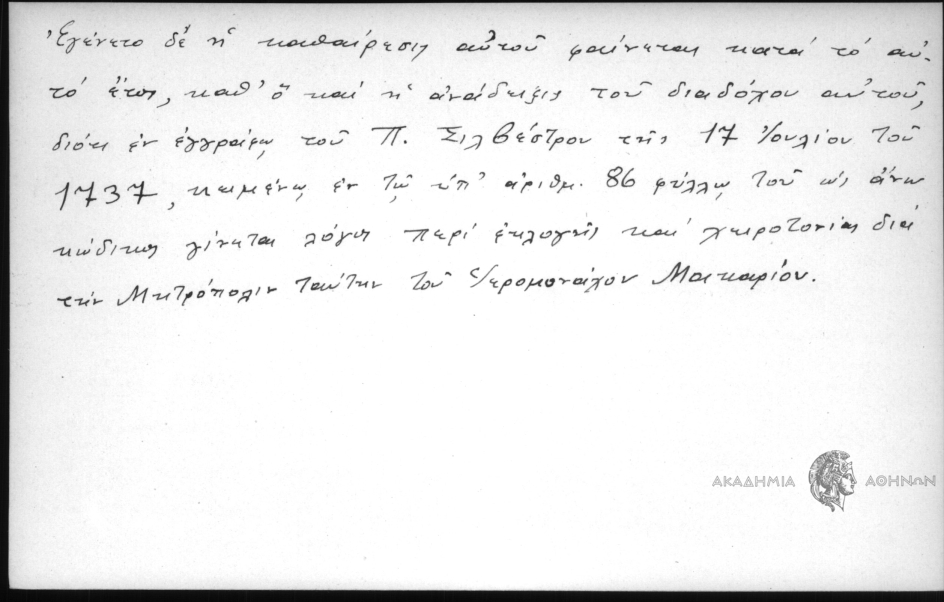 Ἐγένετο δὲ ἡ καθαίρεσις αὐτοῦ φαίνεται κατά τό αὐ-
τό ἔτος, καθ' ὅ καί ἡ ἀνάδειξις τοῦ διαδόχου αὐτοῦ,
διότι ἐν ἐγγράφῳ τοῦ Π. Σιλβέστρου τῆς 17 Ἰουλίου τοῦ
1737, κειμένῳ ἐν τῷ ὑπ' ἀριθμ. 86 φύλλῳ τοῦ ὡς ἄνω
κώδικος γίνεται λόγος περί ἐκλογῆς καί χειροτονίας διά
τήν Μητρόπολιν ταύτην τοῦ Ἱερομονάχου Μακαρίου.
ΑΚΑΔΗΜΙΑ ΑΘΗΝΩΝ